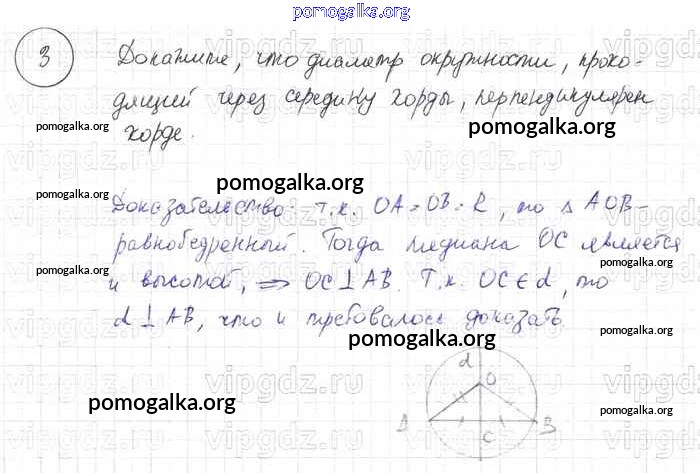 pomogalka.org
3 Докажите, что диаметр окружности, прохо-
дящий через середину хорды, перпендикулярен
хорде.
pomogalka.org
pomogalka.org
pomogalka.org
pomogalka.org
pomogalka.org
Доказательство: т.к. OA = OB = R, то △ AOB -
равнобедренный. Тогда медиана OC является
и высотой, ⇒ OC ⊥ AB. Т.к. OC ∈ d, то
d ⊥ AB, что и требовалось доказать.
pomogalka.org
pomogalka.org
pomogalka.org
pomogalka.org
pomogalka.org
pomogalka.org
pomogalka.org
d
O
A
C
B
vipgdz.ru
vipgdz.ru
vipgdz.ru